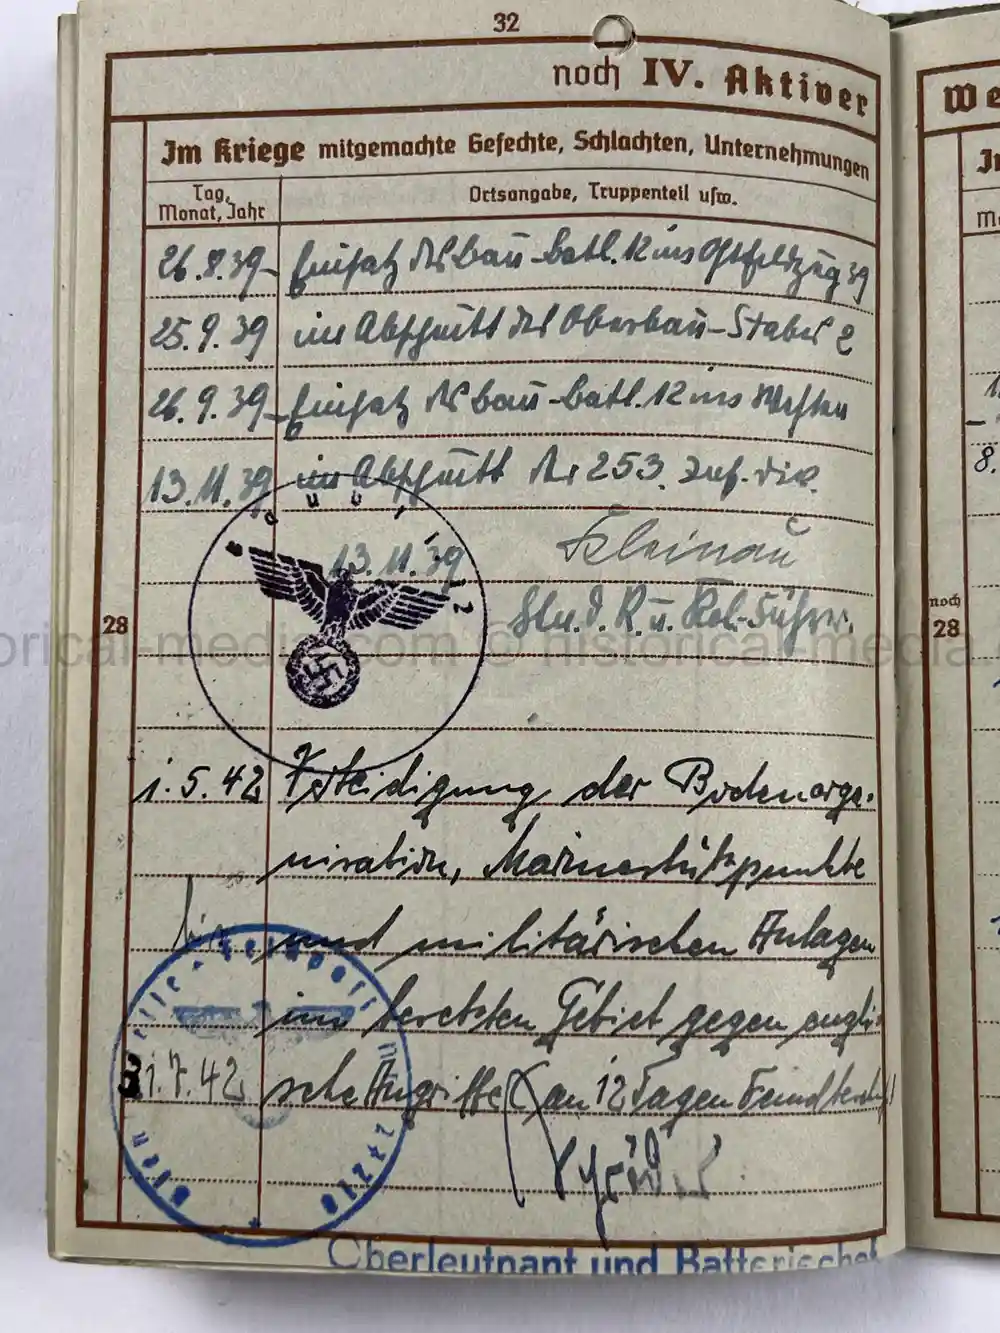 32
noch IV. Aktiver
We
Im Kriege mitgemachte Gefechte, Schlachten, Unternehmungen
Tag, Monat, Jahr
Ortsangabe, Truppenteil usw.
26.8.39- Einsatz des Bau-Batl. 12 ins Ostfeldzug 39
25.9.39 im Abschnitt des Oberbau-Stabes 2
26.9.39- Einsatz des Bau-Batl. 12 ins Westen
13.11.39 im Abschnitt der 253. Inf. Div.
13.11.39
Kleinau
u. Kol.-Führer.
28
noch
28
1.5.42 Verteidigung der Bodenorga-
nisation, Marinestützpunkte
bis und militärischen Anlagen
im besetzten Gebiet gegen engli-
31.7.42 sche Angriffe (an 12 Tagen
Oberleutnant und Batteriechef
historical-media.com © historical-media